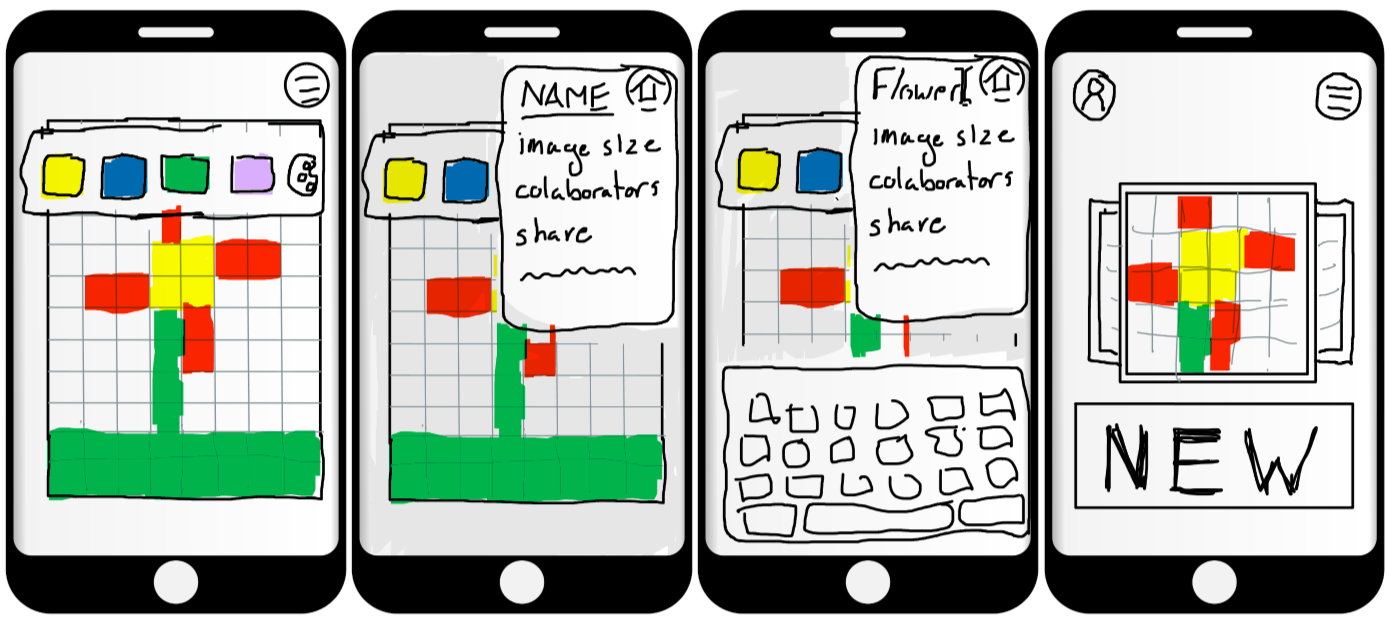 NAME
image size
colaborators
share
Flower
image size
colaborators
share
NEW